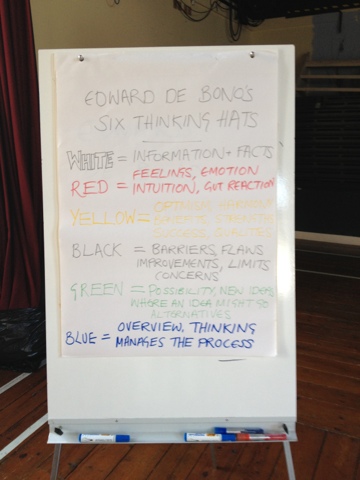 EDWARD DE BONO'S
SIX THINKING HATS
WHITE = INFORMATION + FACTS
FEELINGS, EMOTION
RED = INTUITION, GUT REACTION
YELLOW = BENEFITS STRENGTHS
SUCCESS, QUALITIES
BLACK = BARRIERS, FLAWS
IMPROVEMENTS, LIMITS
CONCERNS
GREEN = POSSIBILITY, NEW IDEAS
WHERE AN IDEA MIGHT GO
ALTERNATIVES
BLUE = OVERVIEW, THINKING
MANAGES THE PROCESS